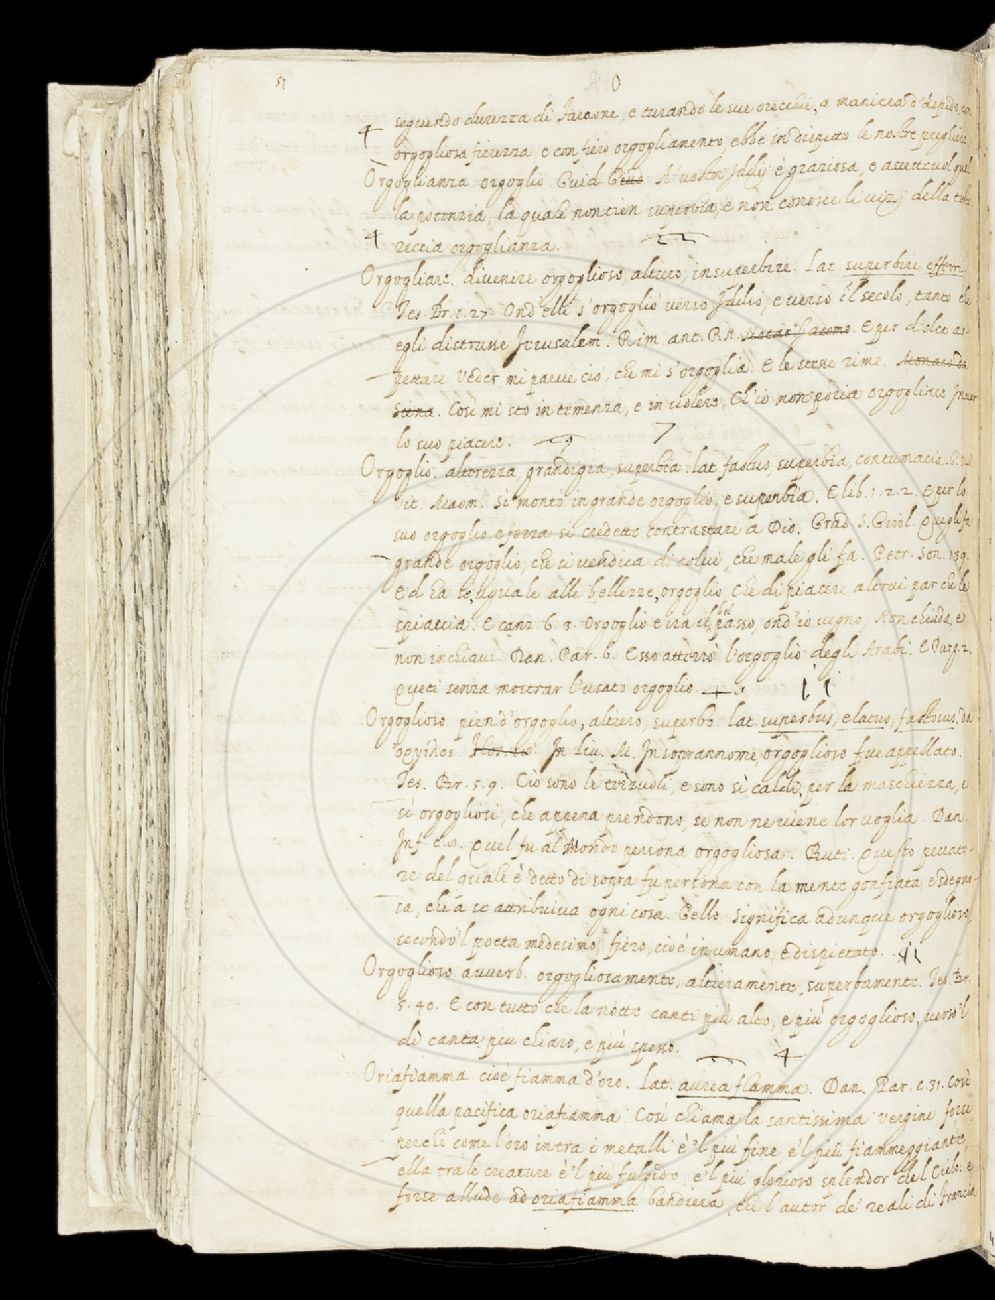 51
O
seguendo durezza di Faraone, e turando le sue orecchie, a maniera d'aspido, con
orgogliosa fierezza e con fiero orgogliamento, ebbe in dispetto le nostre preghiere.
Orgoglianza orgoglio. Guid. G. A' vostri Idelij è graziosa, e accettevol quel
la potenzia, la quale non tien superbia, e non conosce li vizij della
reccia orgoglianza.
Orgogliare. divenire orgoglioso, altiero, insuperbire. Lat. superbire, efferri.
Tes. Br. 1. 27. Ond' elli s' orgogliò verso Iddio, e verso il secolo, tanto ch'
egli distrusse Jerusalem. Rim. ant. R.N. Notar Jacomo. E per dolce as-
pettare veder mi parve ciò, che mi s'orgoglia. E le stesse rime. Monaco da
Siena. Così mi sto in temenza, e in volere, Ch' io non poria orgogliare In ver
lo suo piacere.
Orgoglio. alterezza, grandigia, superbia. lat. fastus, superbia, contumacia. G. Vill.
vit. Maom. Si montò in grande orgoglio, e superbia. E lib. 1. 2. 2. E per lo
suo orgoglio e forza si credette contrastare a Dio. Grad. S. Girol. Quegli fa
grande orgoglio, che si vendica di colui, che male gli fa. Petr. Son. 139.
Ed ha sì, uguale alle bellezze, orgoglio, Che di piacere altrui par che le
spiaccia. E canz. 6. 3. Orgoglio e ira il bel passo, ond' io vegno, Non chiuda, e
non inchiavi. Dan. Par. 6. Esso atterrò l'orgoglio degli Arabi. E Purg. 2.
Queti senza mostrar l'usato orgoglio.
Orgoglioso. pien d'orgoglio, altiero, superbo. lat. superbus, elatus, fastosus.
In Liv. M. In soprannome, orgoglioso fue appellato.
Tes. Br. 5. 9. Ciò sono li terzuoli, e sono sì caldi, per la maschiezza, e
sì orgogliosi, che appena prendono, se non ne viene lor voglia. Dan.
Inf. c. 8. Quel fu al Mondo persona orgogliosa. Buti. Questo peccato-
re del quale è detto di sopra fu persona con la mente gonfiata, e sdegno-
sa, che a se attribuiva ogni cosa. Gello. Significa adunque orgoglioso,
secondo 'l poeta medesimo, fiero, cioè inumano, e dispietato.
Orgoglioso. avverb. orgogliosamente, altieramente, superbamente. Tes. Br.
5. 40. E con tutto che la notte canti più alto, e più orgoglioso, verso 'l
dì canta più chiaro, e più spesso.
Oriafiamma. cioè fiamma d'oro. Lat. aurea flamma. Dan. Par. c. 31. Così
quella pacifica oriafiamma. Così chiama la santissima Vergine, forse
perchè come l'oro intra i metalli è 'l più fine e 'l più fiammeggiante,
ella tra le creature è 'l più fulgido, e 'l più glorioso splendor del Cielo: e
forse allude ad oriafiamma bandiera, che l'autor de' reali di Francia